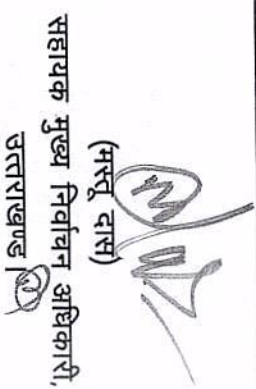 (मस्तू दास)
सहायक मुख्य निर्वाचन अधिकारी,
उत्तराखण्ड।